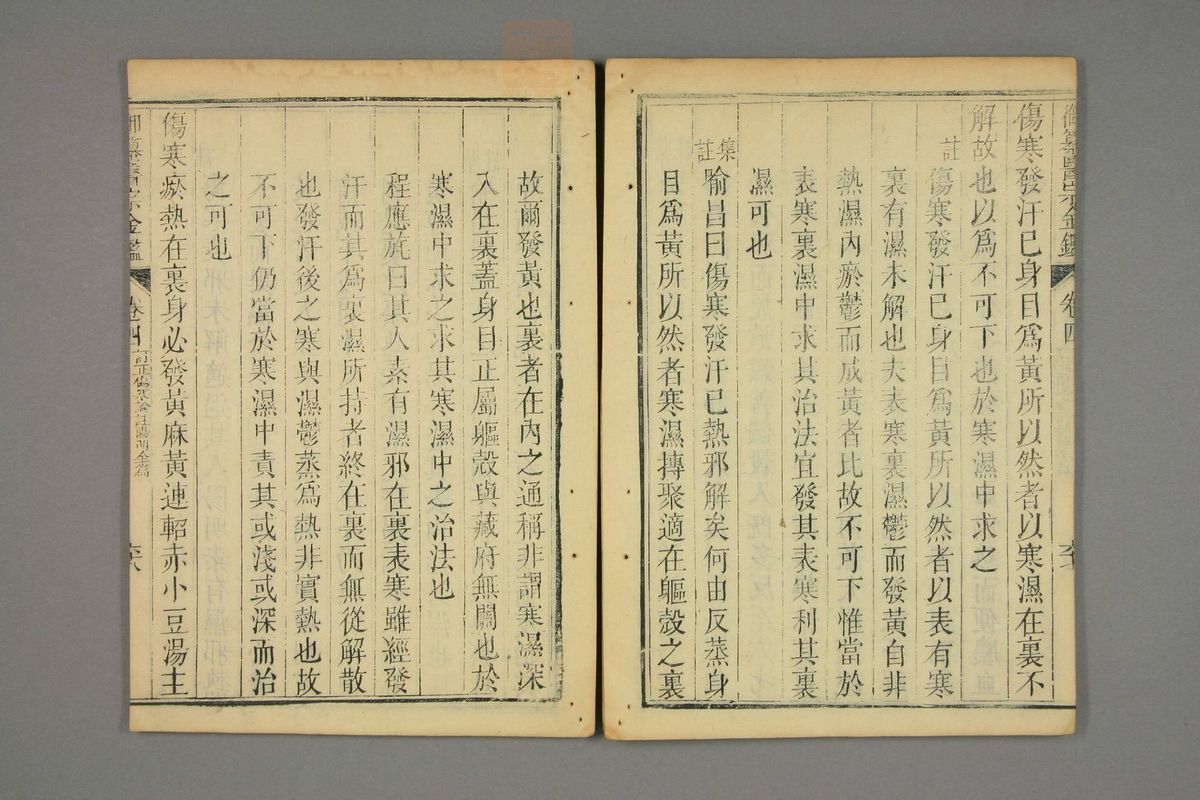 御纂醫宗金鑑 卷四
傷寒發汗已身目爲黃所以然者以寒濕在裏不
解故也以爲不可下也於寒濕中求之
註 傷寒發汗已身目爲黃所以然者以表有寒
裏有濕未解也夫表寒裏濕鬱而發黃自非
熱濕內瘀鬱而成黃者比故不可下惟當於
表寒裏濕中求其治法宜發其表寒利其裏
濕可也
集註 喻昌曰傷寒發汗已熱邪解矣何由反蒸身
目爲黃所以然者寒濕摶聚適在軀殼之裏
故爾發黃也裏者在內之通稱非謂寒濕深
入在裏蓋身目正屬軀殼與藏府無關也於
寒濕中求之求其寒濕中之治法也
程應旄曰其人素有濕邪在裏表寒雖經發
汗而其爲裏濕所持者終在裏而無從解散
也發汗後之寒與濕鬱蒸爲熱非實熱也故
不可下仍當於寒濕中責其或淺或深而治
之可也
傷寒瘀熱在裏身必發黃麻黃連軺赤小豆湯主
金鑑 卷四 訂正傷寒論註陽明全篇